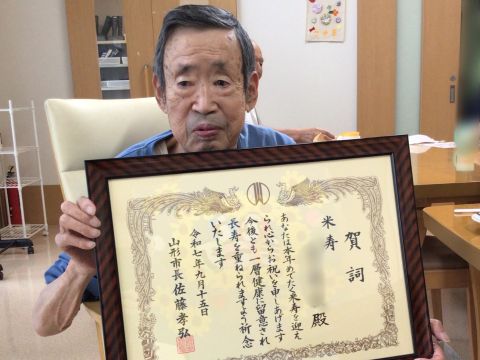 賀詞
米寿
殿
あなたは本年めでたく米寿を迎え
られ心からお祝いを申しあげます
今後とも一層健康に留意され
長寿を重ねられますよう祈念
いたします
令和七年九月十五日
山形市長佐藤孝弘